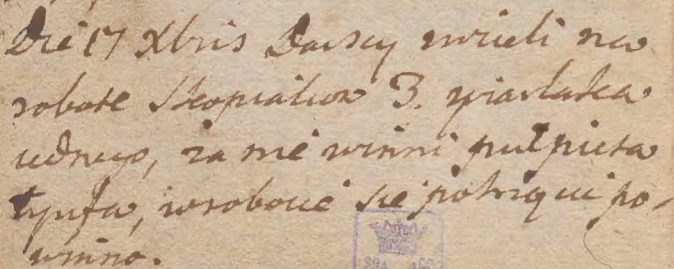 Die 17 Xbris Darscy wzieli na
robote Skopialius 3. ziarlaka
iednego, za nie winni pułpieta
tynfa, w robocie się potrącić po-
winno.